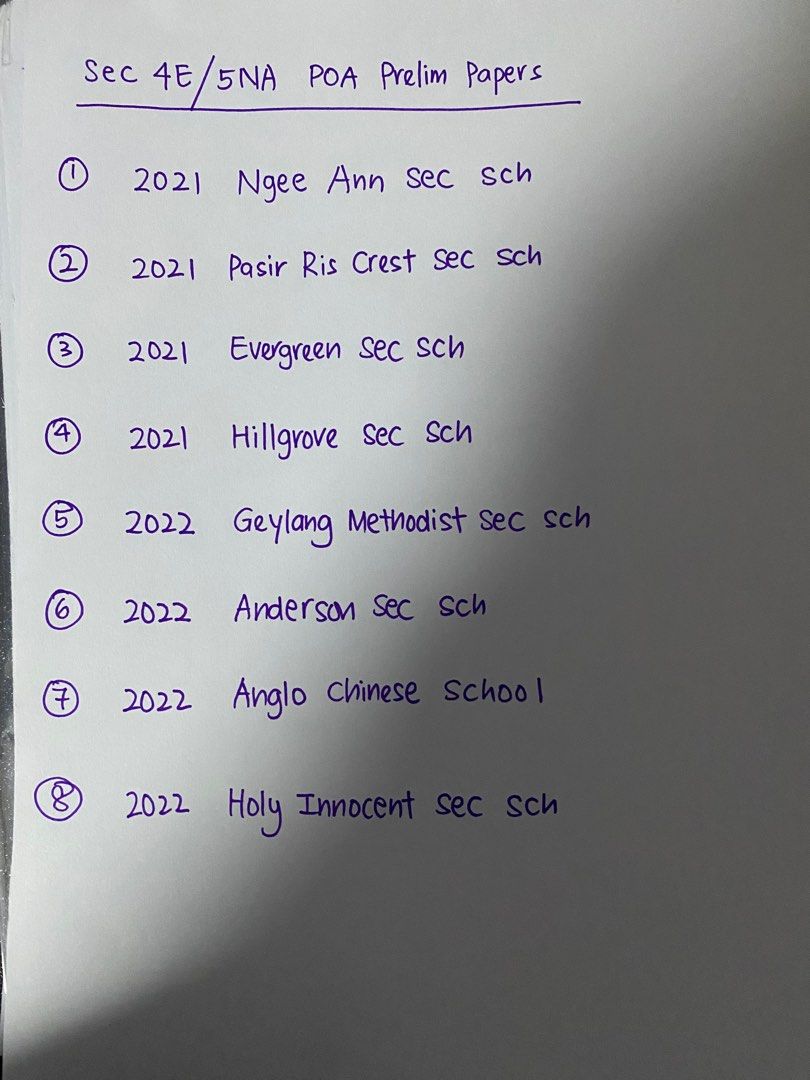 Sec 4E/5NA POA Prelim Papers
① 2021 Ngee Ann Sec Sch
② 2021 Pasir Ris Crest Sec Sch
③ 2021 Evergreen Sec Sch
④ 2021 Hillgrove Sec Sch
⑤ 2022 Geylang Methodist Sec Sch
⑥ 2022 Anderson Sec Sch
⑦ 2022 Anglo Chinese School
⑧ 2022 Holy Innocent Sec Sch